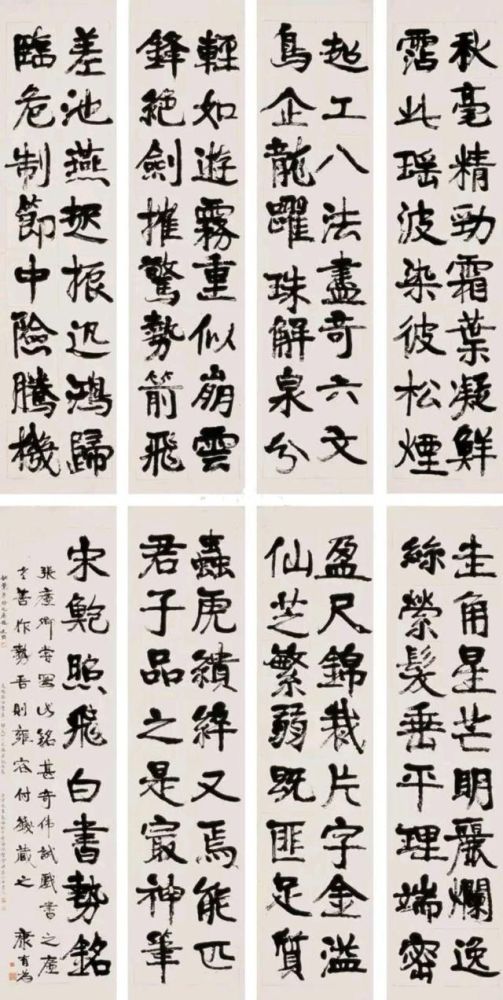 秋毫精勁霜葉凝鮮
霑此瑤波染彼松煙
超工八法盡奇六文
鳥企龍躍珠解泉分
輕如遊霧重似崩雲
鋒絕劍摧驚勢箭飛
差池燕起振迅鴻歸
臨危制節中險騰機
圭角星芒明麗爛逸
絲縈髮垂平理端密
盈尺錦裁片字金溢
仙芝繁弱既匪足質
蟲虎續綷又焉能匹
君子品之是㝡神筆
宋鮑照飛白書勢銘
張廉卿嘗寫此銘甚奇偉試戲書之廉
書作勢吾則雍容付箋藏之 康有為